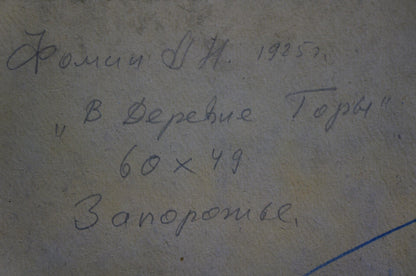 Фомин Д Н. 1925 г.
"В Деревне Горы"
60 x 49
Запорожье.